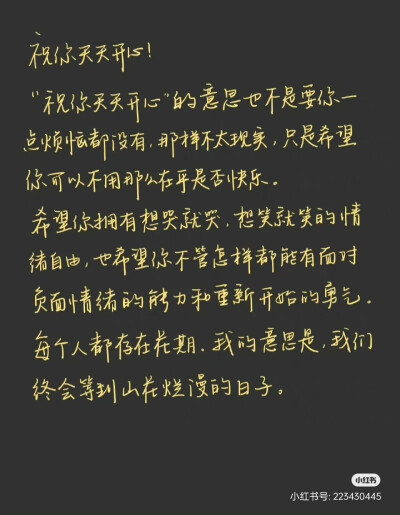 祝你天天开心！
“祝你天天开心”的意思也不是要你一
点烦恼都没有，那样不太现实，只是希望
你可以不用那么在乎是否快乐。
希望你拥有想哭就哭，想笑就笑的情
绪自由，也希望你不管怎样都能有面对
负面情绪的能力和重新开始的勇气．
每个人都存在花期．我的意思是，我们
终会等到山花烂漫的日子。
小红书
小红书号: 223430445